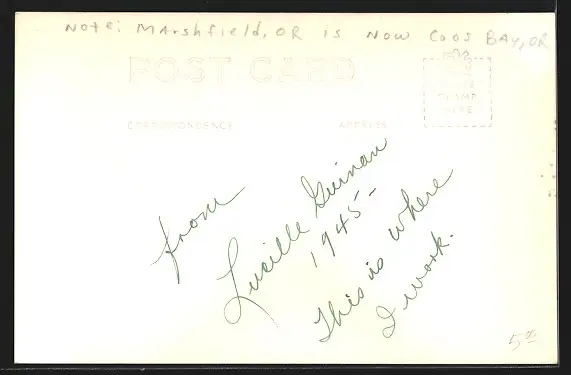 Note: Marshfield, OR is now Coos Bay, OR
POST CARD
CORRESPONDENCE
ADDRESS
STAMP
HERE
from
Lucille Guinan
1945-
This is where
I work.